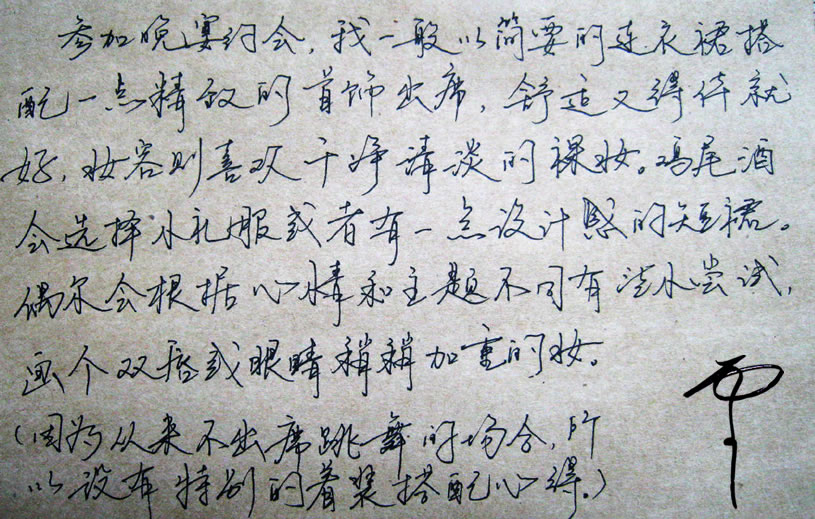 参加晚宴约会，我一般以简要的连衣裙搭
配一点精致的首饰出席，舒适又得体就
好，妆容则喜欢干净清淡的裸妆。鸡尾酒
会选择小礼服或者有一点设计感的短裙。
偶尔会根据心情和主题不同有些小尝试，
画个双唇或眼睛稍稍加重的妆。
（因为从来不出席跳舞的场合，所
以没有特别的着装搭配心得。）